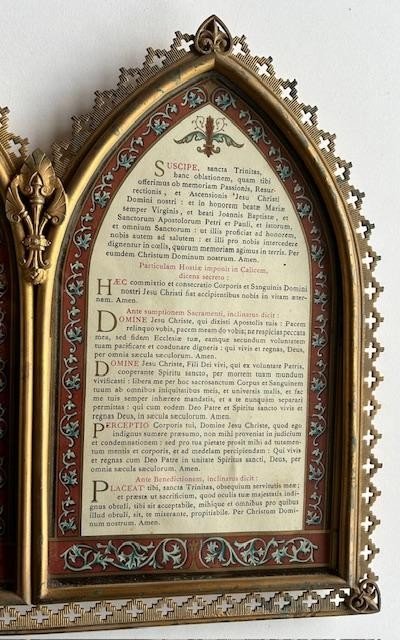 SUSCIPE, sancta Trinitas,
hanc oblationem, quam tibi
offerimus ob memoriam Passionis, Resur-
rectionis, et Ascensionis Jesu Christi
Domini nostri : et in honorem beatæ Mariæ
semper Virginis, et beati Joannis Baptistæ, et
Sanctorum Apostolorum Petri et Pauli, et istorum,
et omnium Sanctorum : ut illis proficiat ad honorem,
nobis autem ad salutem : et illi pro nobis intercedere
dignentur in cœlis, quorum memoriam agimus in terris. Per
eumdem Christum Dominum nostrum. Amen.
Particulam Hostiæ imponit in Calicem,
dicens secreto :
HÆC commixtio et consecratio Corporis et Sanguinis Domini
nostri Jesu Christi fiat accipientibus nobis in vitam æter-
nam. Amen.
Ante sumptionem Sacramenti, inclinatus dicit :
DOMINE Jesu Christe, qui dixisti Apostolis tuis : Pacem
relinquo vobis, pacem meam do vobis; ne respicias peccata
mea, sed fidem Ecclesiæ tuæ, eamque secundum voluntatem
tuam pacificare et coadunare digneris : qui vivis et regnas, Deus,
per omnia sæcula sæculorum. Amen.
DOMINE Jesu Christe, Fili Dei vivi, qui ex voluntate Patris,
cooperante Spiritu sancto, per mortem tuam mundum
vivificasti : libera me per hoc sacrosanctum Corpus et Sanguinem
tuum ab omnibus iniquitatibus meis, et universis malis, et fac
me tuis semper inhærere mandatis, et a te nunquam separari
permittas : qui cum eodem Deo Patre et Spiritu sancto vivis et
regnas Deus, in sæcula sæculorum. Amen.
PERCEPTIO Corporis tui, Domine Jesu Christe, quod ego
indignus sumere præsumo, non mihi proveniat in judicium
et condemnationem : sed pro tua pietate prosit mihi ad tutamen-
tum mentis et corporis, et ad medelam percipiendam : Qui vivis
et regnas cum Deo Patre in unitate Spiritus sancti, Deus, per
omnia sæcula sæculorum. Amen.
Ante Benedictionem, inclinatus dicit :
PLACEAT tibi, sancta Trinitas, obsequium servitutis meæ;
et præsta ut sacrificium, quod oculis tuæ majestatis indi-
gnus obtuli, tibi sit acceptabile, mihique et omnibus pro quibus
illud obtuli, sit, te miserante, propitiabile. Per Christum Domi-
num nostrum. Amen.